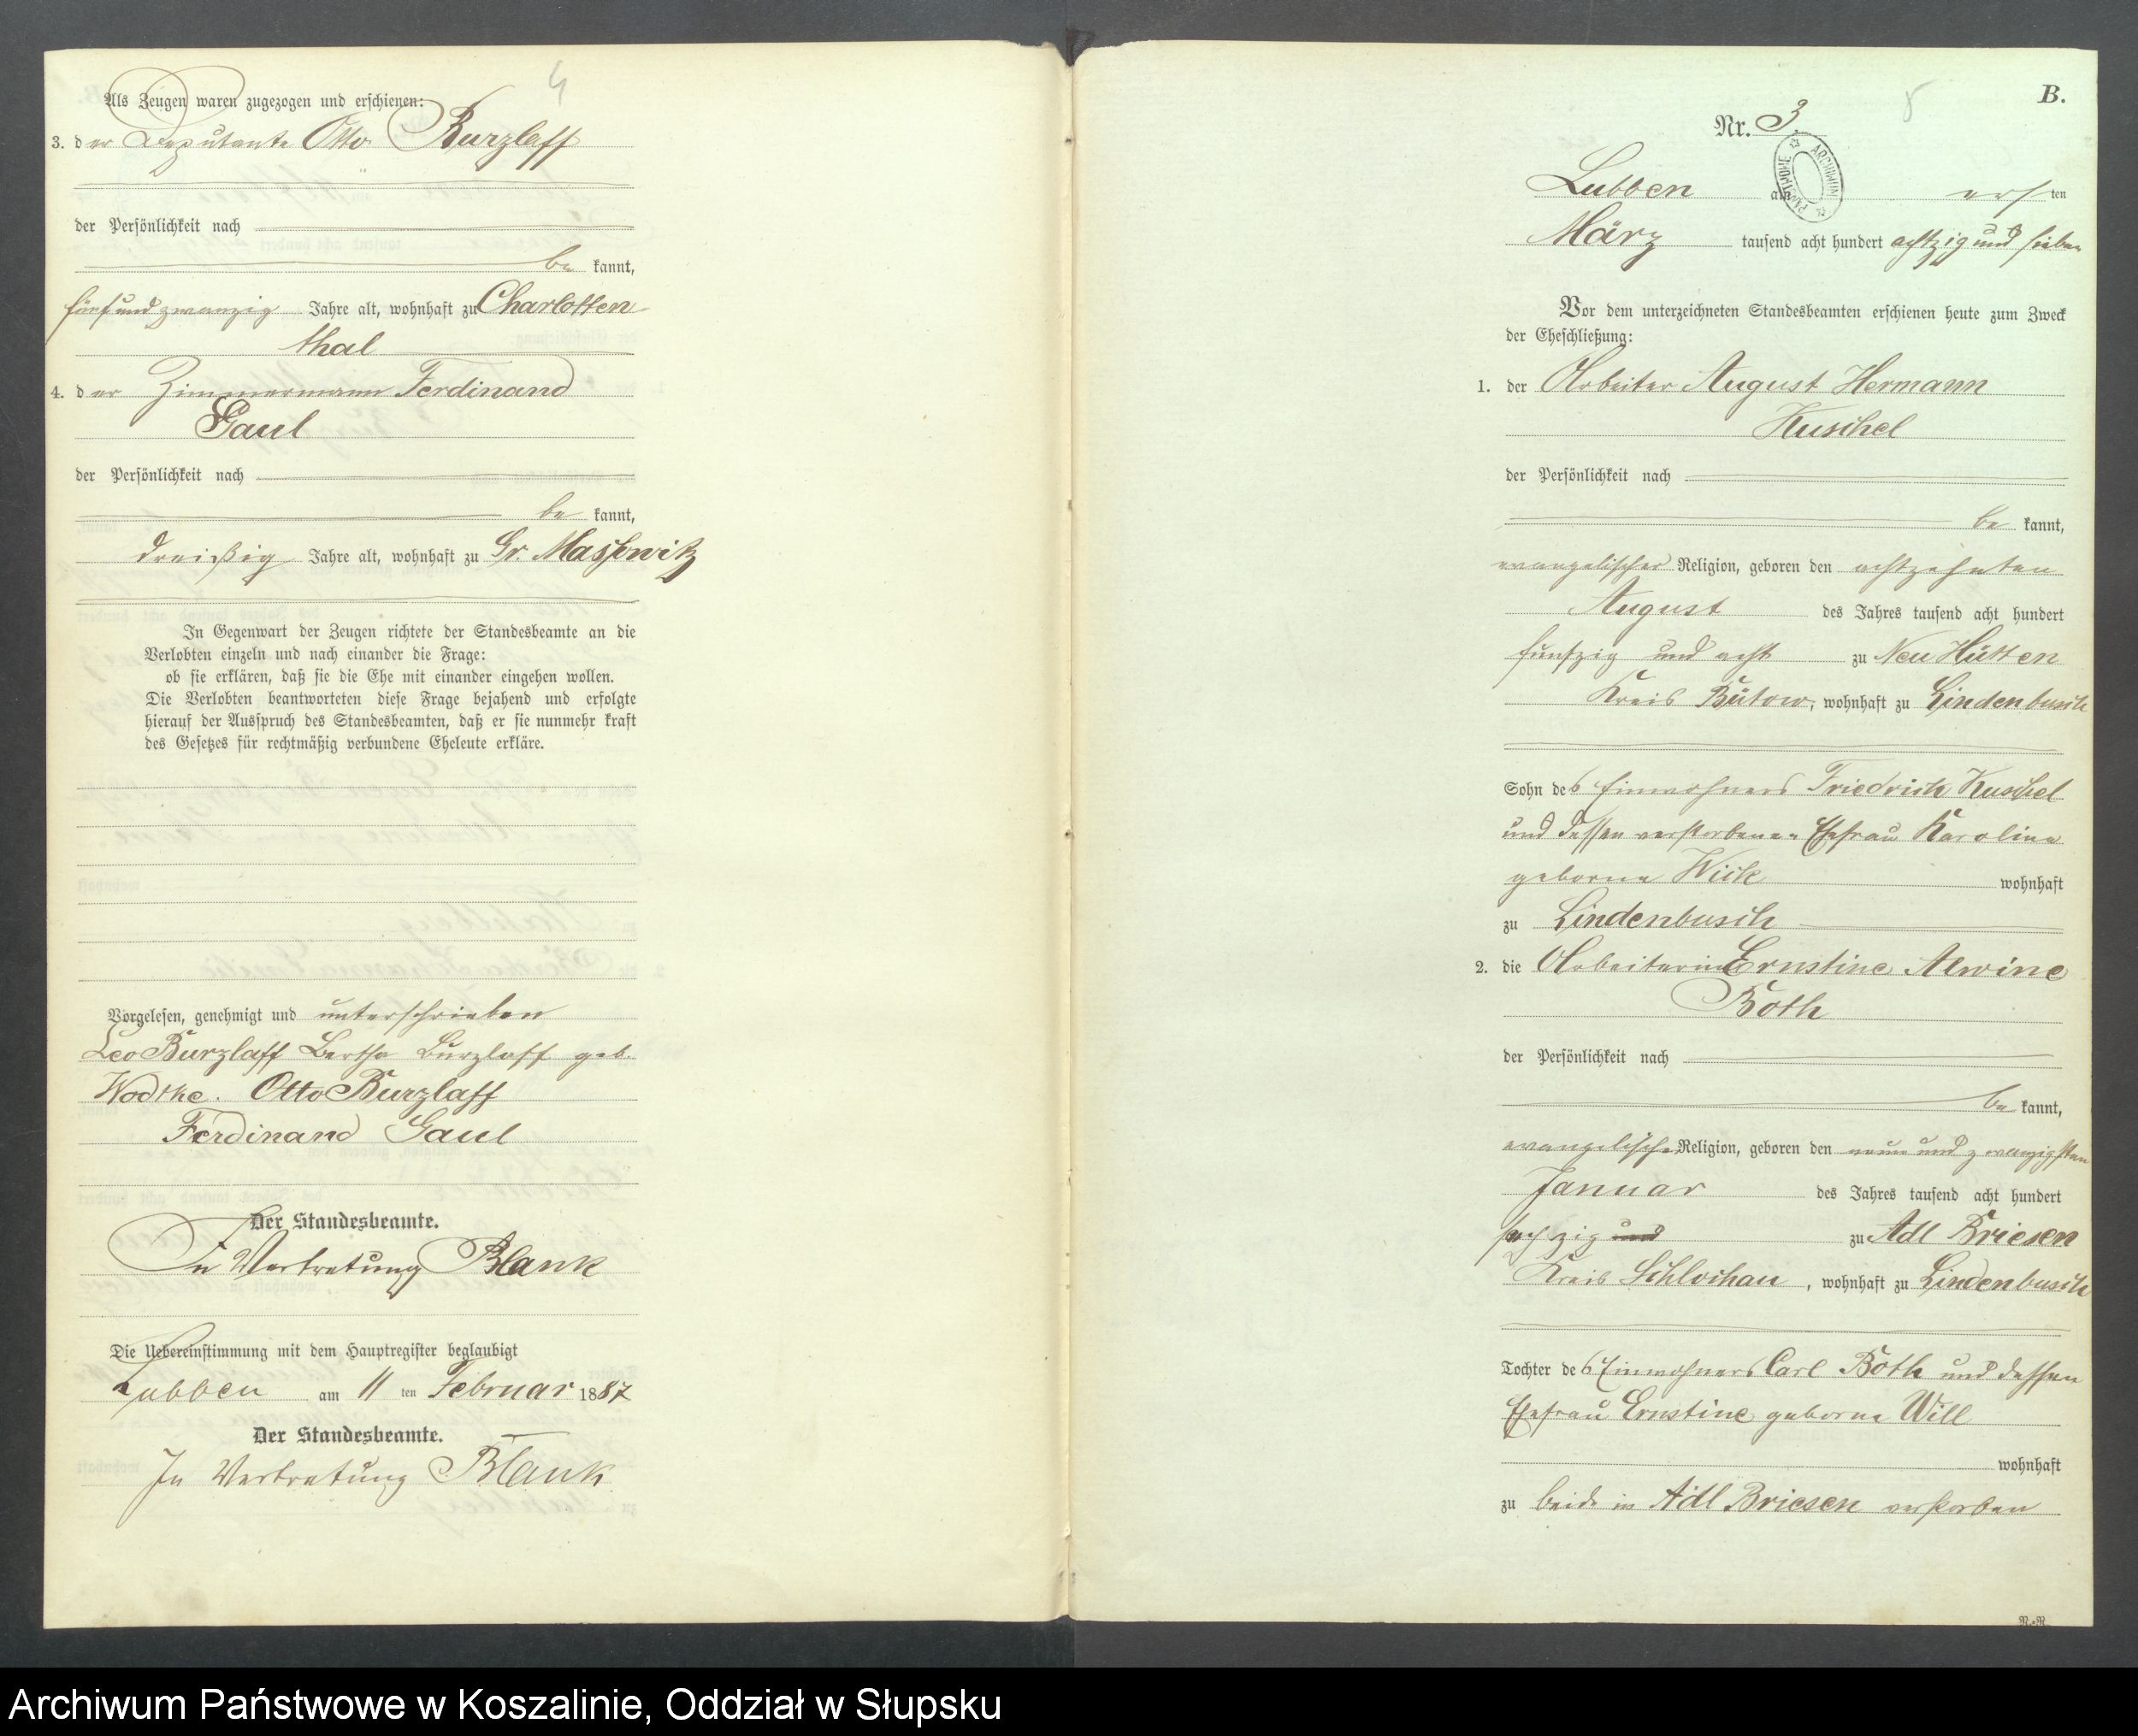 4
Als Zeugen waren zugezogen und erschienen:
3. der Deputante Otto Burzlaff
der Persönlichkeit nach
be kannt,
fünf und zwanzig Jahre alt, wohnhaft zu Charlotten
thal
4. der Zimmermann Ferdinand
Gaul
der Persönlichkeit nach
be kannt,
dreißig Jahre alt, wohnhaft zu Gr. Massowitz
In Gegenwart der Zeugen richtete der Standesbeamte an die
Verlobten einzeln und nach einander die Frage:
ob sie erklären, daß sie die Ehe mit einander eingehen wollen.
Die Verlobten beantworteten diese Frage bejahend und erfolgte
hierauf der Ausspruch des Standesbeamten, daß er sie nunmehr kraft
des Gesetzes für rechtmäßig verbundene Eheleute erkläre.
Vorgelesen, genehmigt und unterschrieben
Leo Burzlaff Bertha Burzlaff geb.
Wodtke. Otto Burzlaff
Ferdinand Gaul
Der Standesbeamte.
In Vertretung Blank
Die Uebereinstimmung mit dem Hauptregister beglaubigt
Lubben am 11 ten Februar 1887
Der Standesbeamte.
In Vertretung Blank
5
B.
Nr. 3.
ARCHIWUM PAŃSTWOWE
Lubben am ersten
März tausend acht hundert achtzig und sieben
Vor dem unterzeichneten Standesbeamten erschienen heute zum Zweck
der Eheschließung:
1. der Arbeiter August Hermann
Kuschel
der Persönlichkeit nach
be kannt,
evangelischer Religion, geboren den achtzehnten
August des Jahres tausend acht hundert
funfzig und acht zu Neu Hütten
Kreis Bütow, wohnhaft zu Lindenbusch
Sohn des Einwohners Friedrich Kuschel
und dessen verstorbenen Ehefrau Karoline
geborne Wick wohnhaft
zu Lindenbusch
2. die Arbeiterin Ernstine Alwine
Both
der Persönlichkeit nach
be kannt,
evangelischer Religion, geboren den neun und zwanzigsten
Januar des Jahres tausend acht hundert
sechzig und zu Adl Briesen
Kreis Schlochau, wohnhaft zu Lindenbusch
Tochter des Einwohners Carl Both und dessen
Ehefrau Ernstine geborne Will
wohnhaft
zu beide in Adl Briesen verstorben
R.-R.
Archiwum Państwowe w Koszalinie, Oddział w Słupsku